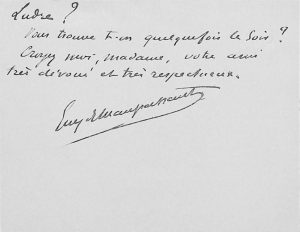 Ludres ?
Vous trouve t-on quelquefois le soir ?
Croyez moi, madame, votre ami
très dévoué et très respectueux.
Guy de Maupassant